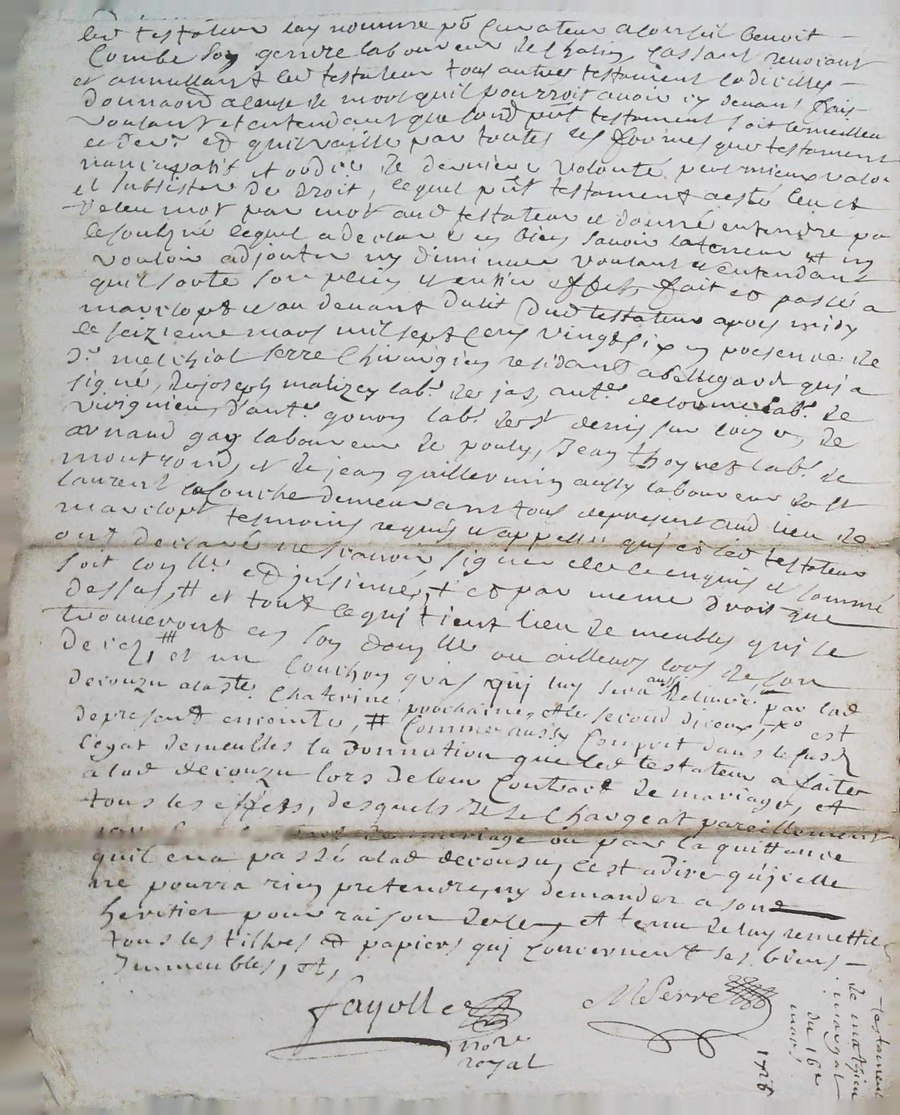 led testateur luy nomme po curateur a conseil Benoit
Combe son gendre laboureur de Chalin, Cassant revoquant
et annullant led testateur tous autres testament codicilles
donnaon a cause de mort quil pourroit avoir cy devant fait
voulant et entendant que sond pnt testament soit le meilleu
et der. et quil vaille par toutes les formes que testament
nuncupatif et ordre de derniere volonté peut mieux valoi
et subsister de droit, lequel pnt testament a esté leu et
releu mot par mot aud testateur et donné entendre par
le soubzne lequel a declaré en bien savoir la teneur et ny
vouloir adjouter ny diminuer voulant et entendant
quil sorte son plein et entier effet, fait et passé a
marclopt et au devant dudit dud testateur apres midy
le seizieme mars mil sept cens vingt six en presence de
Sr melchiol serre Chirurgien residant a bellegarde qui a
signé, de joseph malizey lab. de jas, ant. delorme lab. de
vivignieu, d'ant. gonon lab. de st denis sur coize, de
arnaud gay laboureur de pouly, Jean thoynet lab. de
montrond, et de jean guillermin aussy laboureur de st
laurent la Couche demeurant tous de present aud lieu de
marclopt tesmoins requis et appellé qui et led testateur
ont declaré ne scavoir signer de ce enquis et sommé
soit con. et insinué, + et par meme droit que
dessus, # et tout ce qui tient lieu de meubles qui se
trouveront en son ou ailleurs lors de son
deces, # et un Couchon gras qui luy sera aussi delivré par lad
decouzu a la ste Chaterine prochaine, et le second dont est
de present enceinte, # Comme aussy Comprit dans le susd
legat de meubles la Donnation que led testateur a faites
a lad decouzu lors de leur Contract de mariage, et
tous les effets, desquels il se chargeat pareillement
par de mariage ou par la quittance
quil en a passé a lad decouzu, c'est a dire qu'icelle
ne pourra rien pretendre, ny demander a sond
heritier pour raison de ce, et tenu de luy remettre
tous les tiltres et papiers qui concernent ses biens
Immeubles, et,
fayolle
nore
royal
M Serre
testament
de mathieu
du 16e
mars
1726